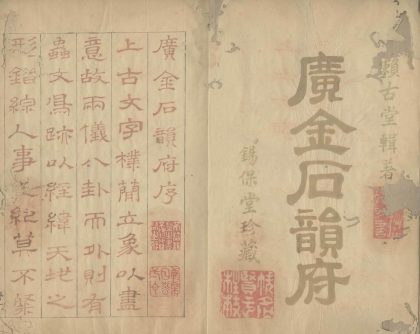 賴古堂輯著
廣金石韻府
錫保堂珍藏
廣金石韻府序
上古文字樸簡立象以盡
意故兩儀八卦而外則有
蟲文鳥跡以經緯天地之
形錯綜人事 紀莫不繫